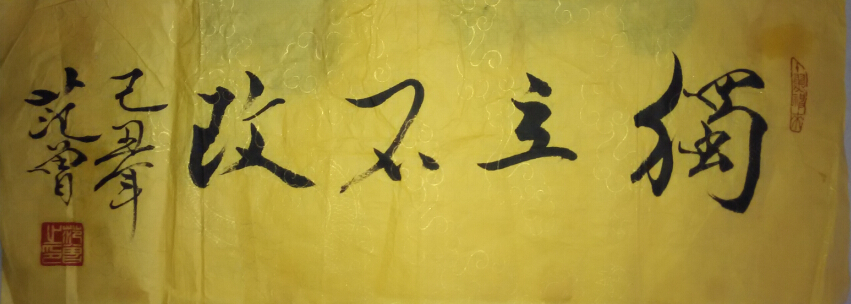 獨立不改
己丑年
范曾